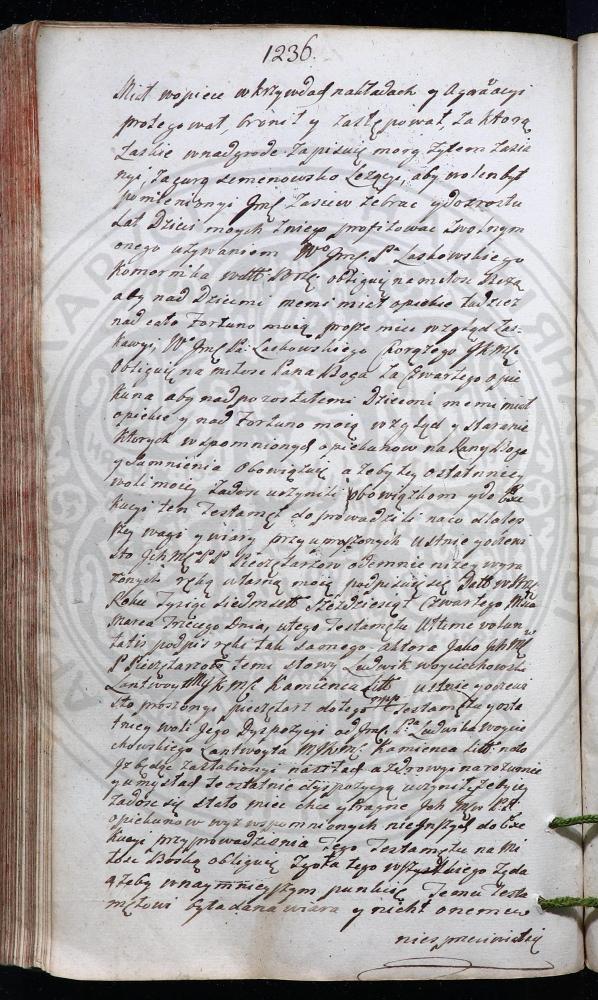 1236.
Miał wopiece w krzywdach nakładach y Agrawacyi
protegował, bronił y zastępował, za którą
Łaskie wnadgrodę zapisuię morg żytem zasia
nyi, za gurą semenowsko Leżący, aby wolen był
pomienionyi Jmć zasiew zebrac ydo zrostu
Lat Dzieci moych zniego profitowac zwolnym
onego używaniem Wo Jmć Pa Laskowskiego
Komornika obliguię na miłosc Bożą
aby nad Dziecmi memi miał opiekie tudziez
nad cało Fortuno moią prosze miec wzgląd Łas-
kawyi, Wo Jmć Pa Laskowskiego Chorążego JKMć
Obliguię na miłosc Pana Boga za Czwartego opie
kuna aby nad pozostałemi Dziecmi memi miał
opiekie y nad Fortuno moią wzgląd y staranie
Których wspomnionych opiekunow na Rany Boze
y Sumnienia obowiązuię azeby tey ostatniey
woli moiey zadosc uczynili obowiązkom ydo Exe
kucyi ten Testament doprowadzili na co dla lep
szey wagi y wiary przy uproszonych ustnie y oczewi
sto Jch Mć PP Pieczętarzow odemnie nizey wyra
zonych ręką własną moią podpisuię się Datt w
Roku Tysiąc Siedmsett Szescdziesiąt Czwartego Msca
Marca Trzeciego Dnia, utego Testamętu Ultimae volun
tatis podpis ręki tak samego aktora Jako Jch Mć
P Pieczętarow temi słowy Ludwik Woyciechowski
Lantwoyt MJKMć Kamienca Litt ustnie y oczewi
sto proszonyi pieczętarz do tego mpp Testamętu yosta
tniey woli Jego Dyspozycyi od Jmć Pa Ludwika Woycie
chowskiego Lantwoyta MJKMć Kamienca Litt: na to
Ja będąc zasłabionyi na siłach a zdrowyi na rozumie
y umyslad te ostatnie dyspozycyą uczynił, zeby iey
zadosc się stało miec chce y Pragne Jch Mćw PP
opiekunow wyz wspomnionych nieinszych do Exe
kucyi przyprowadzenia Tego Testamętu na Mi
łosc Boską obliguię Zgoła tego wszystkiego ządą
ążeby wnaymnieyszym punkcie Temu Testa
mętowi była dana wiara y nicht onemu
niesprzeciwiał się